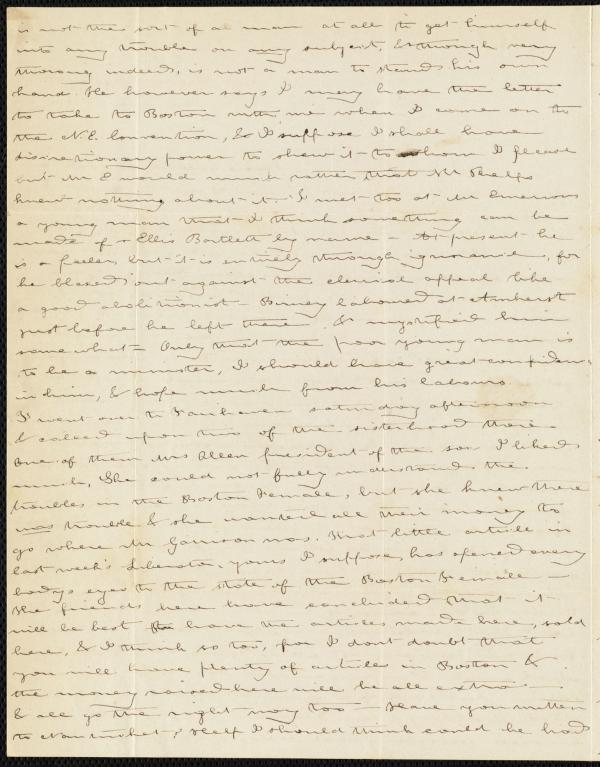 is not the sort of a man at all to get himself
into any trouble on any subject, & though very
thorough indeed, is not a man to stand his own
hand. He however says I may have the letter
to take to Boston with me when I come on to
the N.E. Convention, & I suppose I shall have
discretionary power to shew it to whom I please
but Mr E would much rather that Mr Phelps
knew nothing about it. I met too at Mr Emersons
a young man that I think something can be
made of - Ellis Bartlett by name - At present he
is a feeler, but it is entirely through ignorance, for
he blazed out against the clerical appeal like
a good abolitionist - Birney laboured at Amherst
just before he left there, & mystified him
somewhat - Only that the poor young man is
to be a minister, I should have great confidence
in him, & hope much from his labours.
I went over to Fairhaven saturday afternoon
& called upon two of the sisterhood there -
One of them Mrs Allen president of the soc I liked
much, She could not fully understand the
troubles in the Boston Female, but she knew there
was trouble & she wanted all their money to
go where Mr Garrison was. That little article in
last week's Liberator, yours I suppose, has opened every
bodys eyes to the state of the Boston Female -
The friends here have concluded that it
will be best to have the articles made here, sold
here, & I think so too, for I dont doubt that
you will have plenty of articles in Boston &
the money raised here will be all extra -
& all go the right way too - Have you written
to Nantucket, help I should think could be had